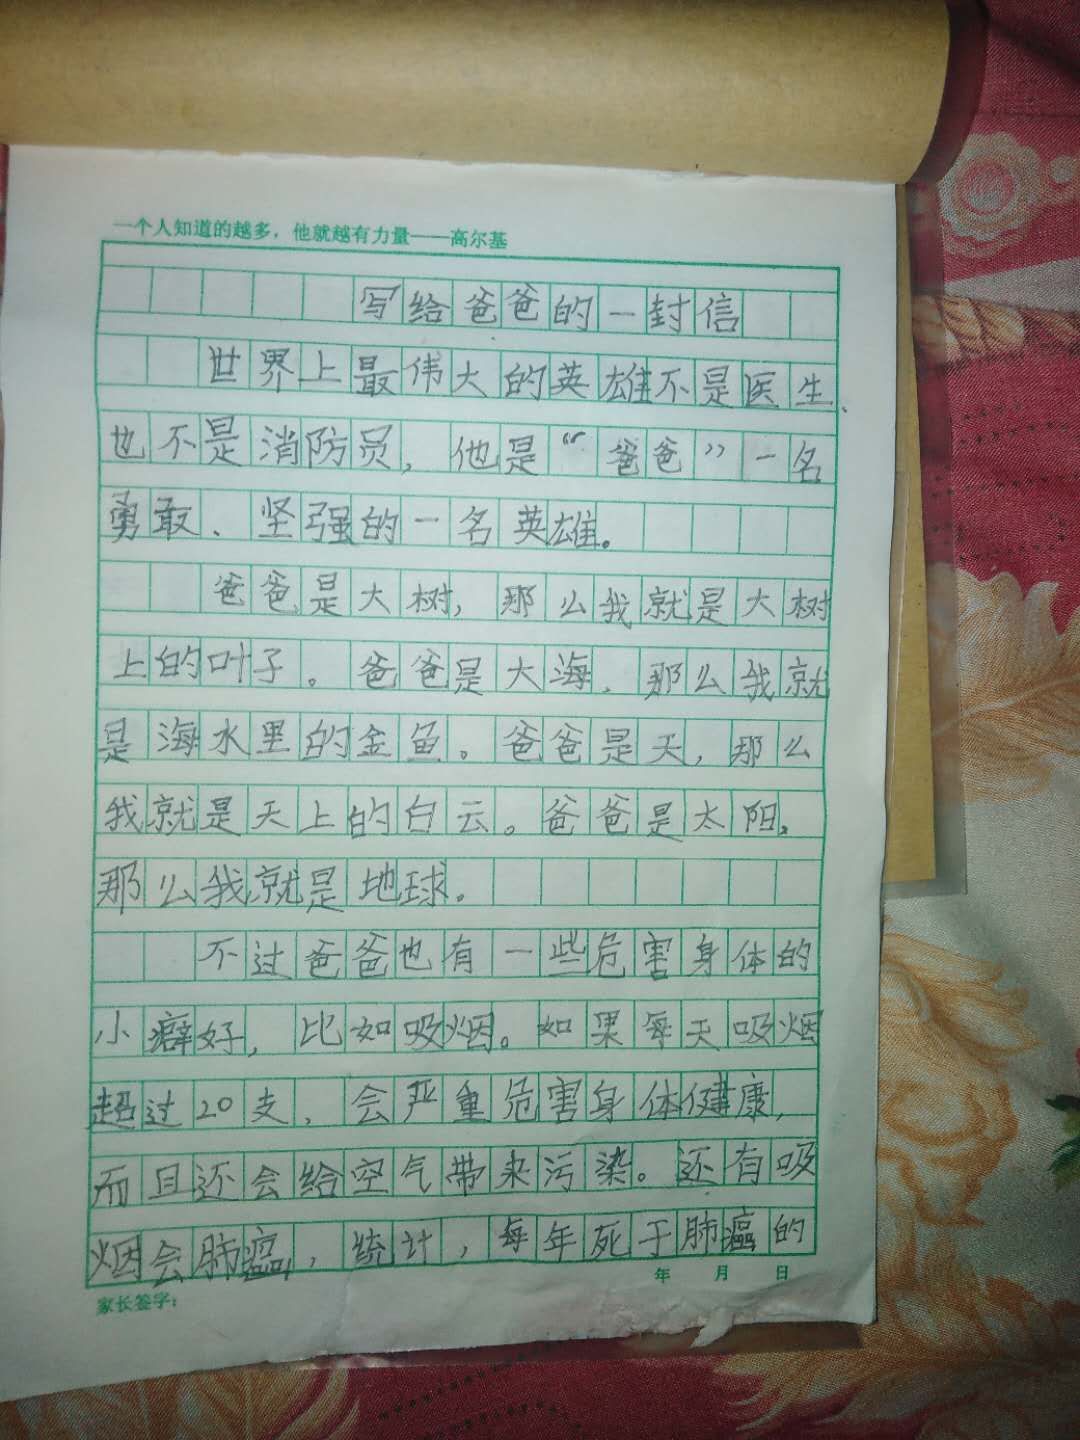 一个人知道的越多，他就越有力量——高尔基
写给爸爸的一封信
世界上最伟大的英雄不是医生、
也不是消防员，他是“爸爸”一名
勇敢、坚强的一名英雄。
爸爸是大树，那么我就是大树
上的叶子。爸爸是大海，那么我就
是海水里的金鱼。爸爸是天，那么
我就是天上的白云。爸爸是太阳，
那么我就是地球。
不过爸爸也有一些危害身体的
小癖好，比如吸烟。如果每天吸烟
超过20支，会严重危害身体健康，
而且还会给空气带来污染。还有吸
烟会肺癌，统计，每年死于肺癌的
年 月 日
家长签字：